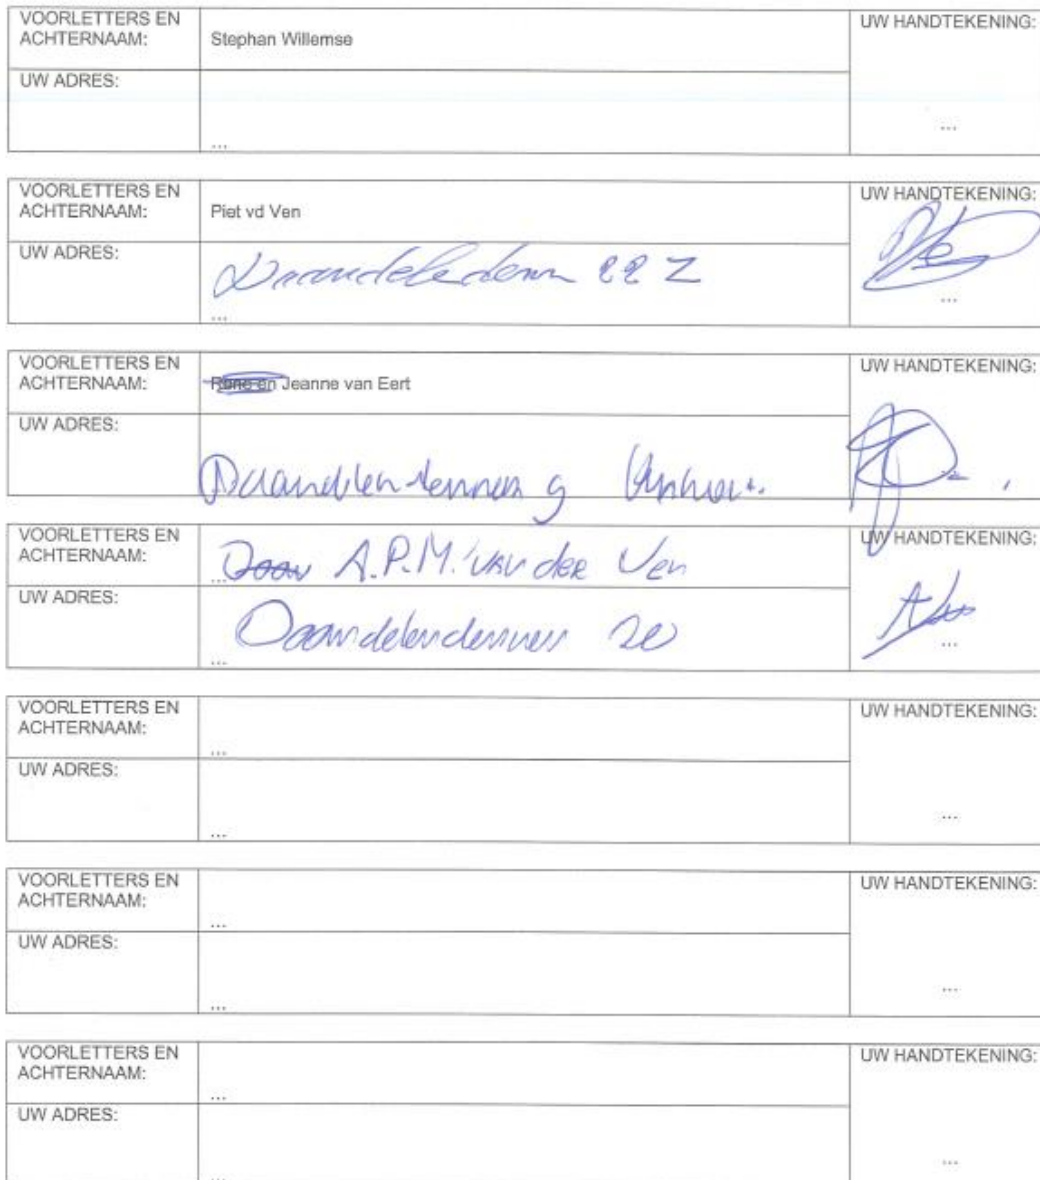 VOORLETTERS EN
ACHTERNAAM:
Stephan Willemse
UW HANDTEKENING:
UW ADRES:
...
...
VOORLETTERS EN
ACHTERNAAM:
Piet vd Ven
UW HANDTEKENING:
UW ADRES:
22 Z
...
...
VOORLETTERS EN
ACHTERNAAM:
Rene en Jeanne van Eert
UW HANDTEKENING:
UW ADRES:
Daandelendennen 9
VOORLETTERS EN
ACHTERNAAM:
... A.P.M. van der Ven
UW HANDTEKENING:
UW ADRES:
Daandelendennen 20
...
...
VOORLETTERS EN
ACHTERNAAM:
...
UW HANDTEKENING:
UW ADRES:
...
...
VOORLETTERS EN
ACHTERNAAM:
...
UW HANDTEKENING:
UW ADRES:
...
...
VOORLETTERS EN
ACHTERNAAM:
...
UW HANDTEKENING:
UW ADRES:
...
...